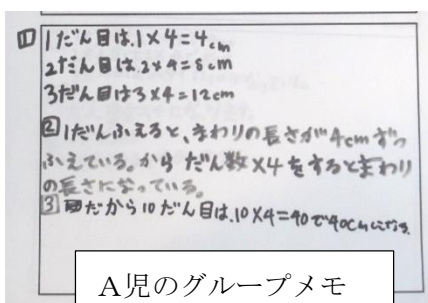 1 1だん目は、1×4=4cm
2だん目は、2×4=8cm
3だん目は3×4=12cm
2 1だんふえると、まわりの長さが4cmずつ
ふえている。から だん数×4をするとまわり
の長さになっている。
3 だから10だん目は、10×4=40で40cmになる。
A児のグループメモ